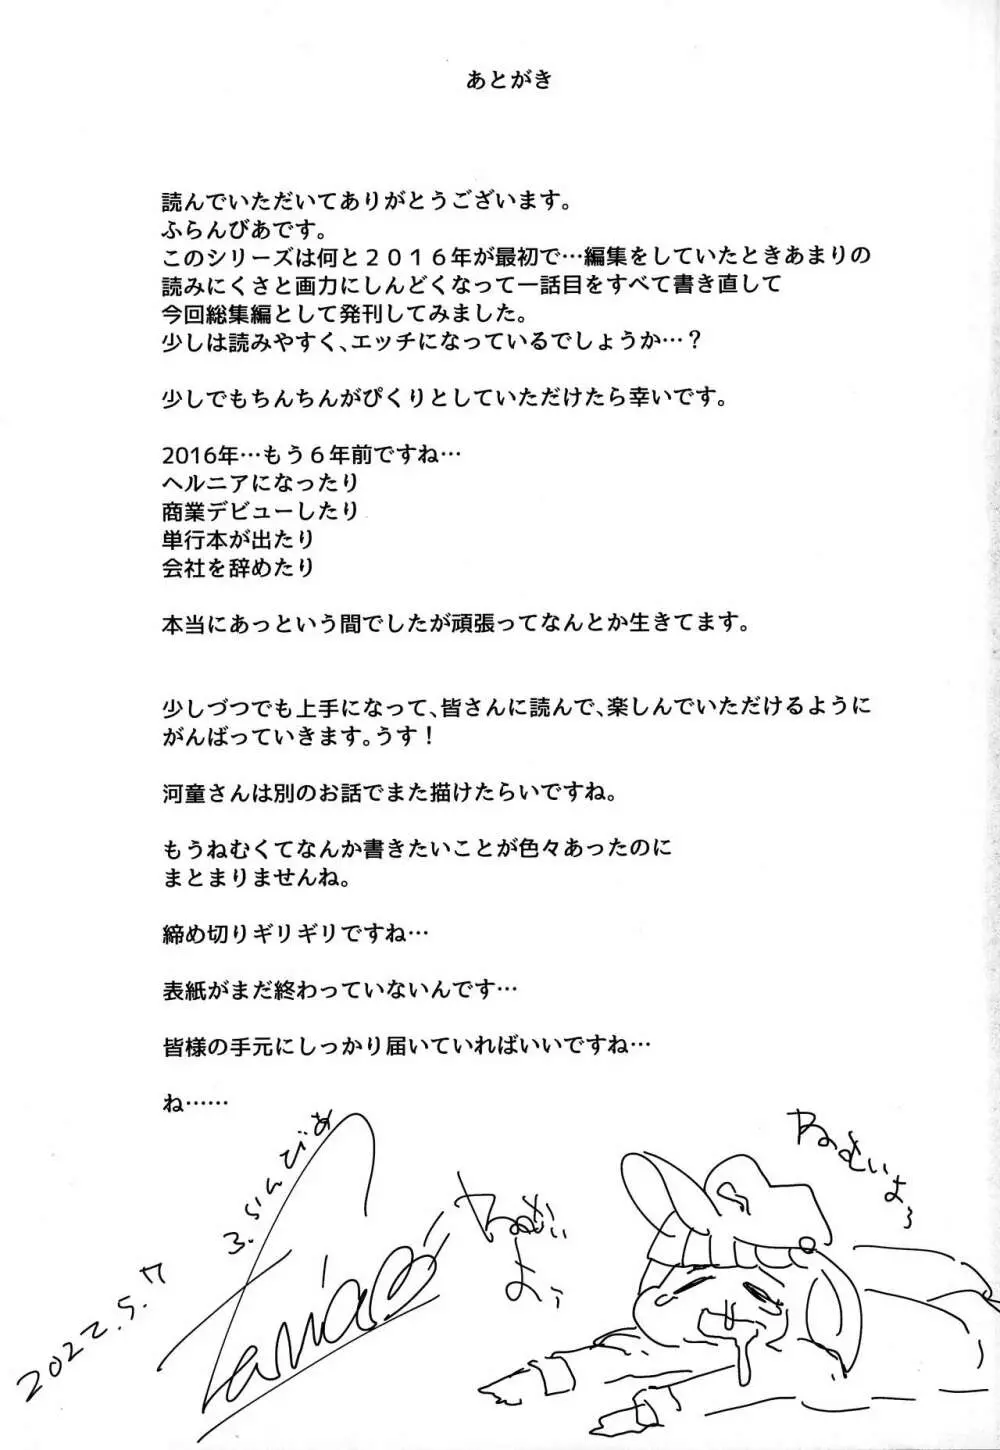 あとがき
読んでいただいてありがとうございます。
ふらんびあです。
このシリーズは何と２０１６年が最初で…編集をしていたときあまりの
読みにくさと画力にしんどくなって一話目をすべて書き直して
今回総集編として発刊してみました。
少しは読みやすく、エッチになっているでしょうか…？
少しでもちんちんがぴくりとしていただけたら幸いです。
2016年…もう６年前ですね…
ヘルニアになったり
商業デビューしたり
単行本が出たり
会社を辞めたり
本当にあっという間でしたが頑張ってなんとか生きてます。
少しづつでも上手になって、皆さんに読んで、楽しんでいただけるように
がんばっていきます。うす！
河童さんは別のお話でまた描けたらいですね。
もうねむくてなんか書きたいことが色々あったのに
まとまりませんね。
締め切りギリギリですね…
表紙がまだ終わっていないんです…
皆様の手元にしっかり届いていればいいですね…
ね……
ふらんびあ
2022.5.17
ねむい
よぅ
ねむいよぅ